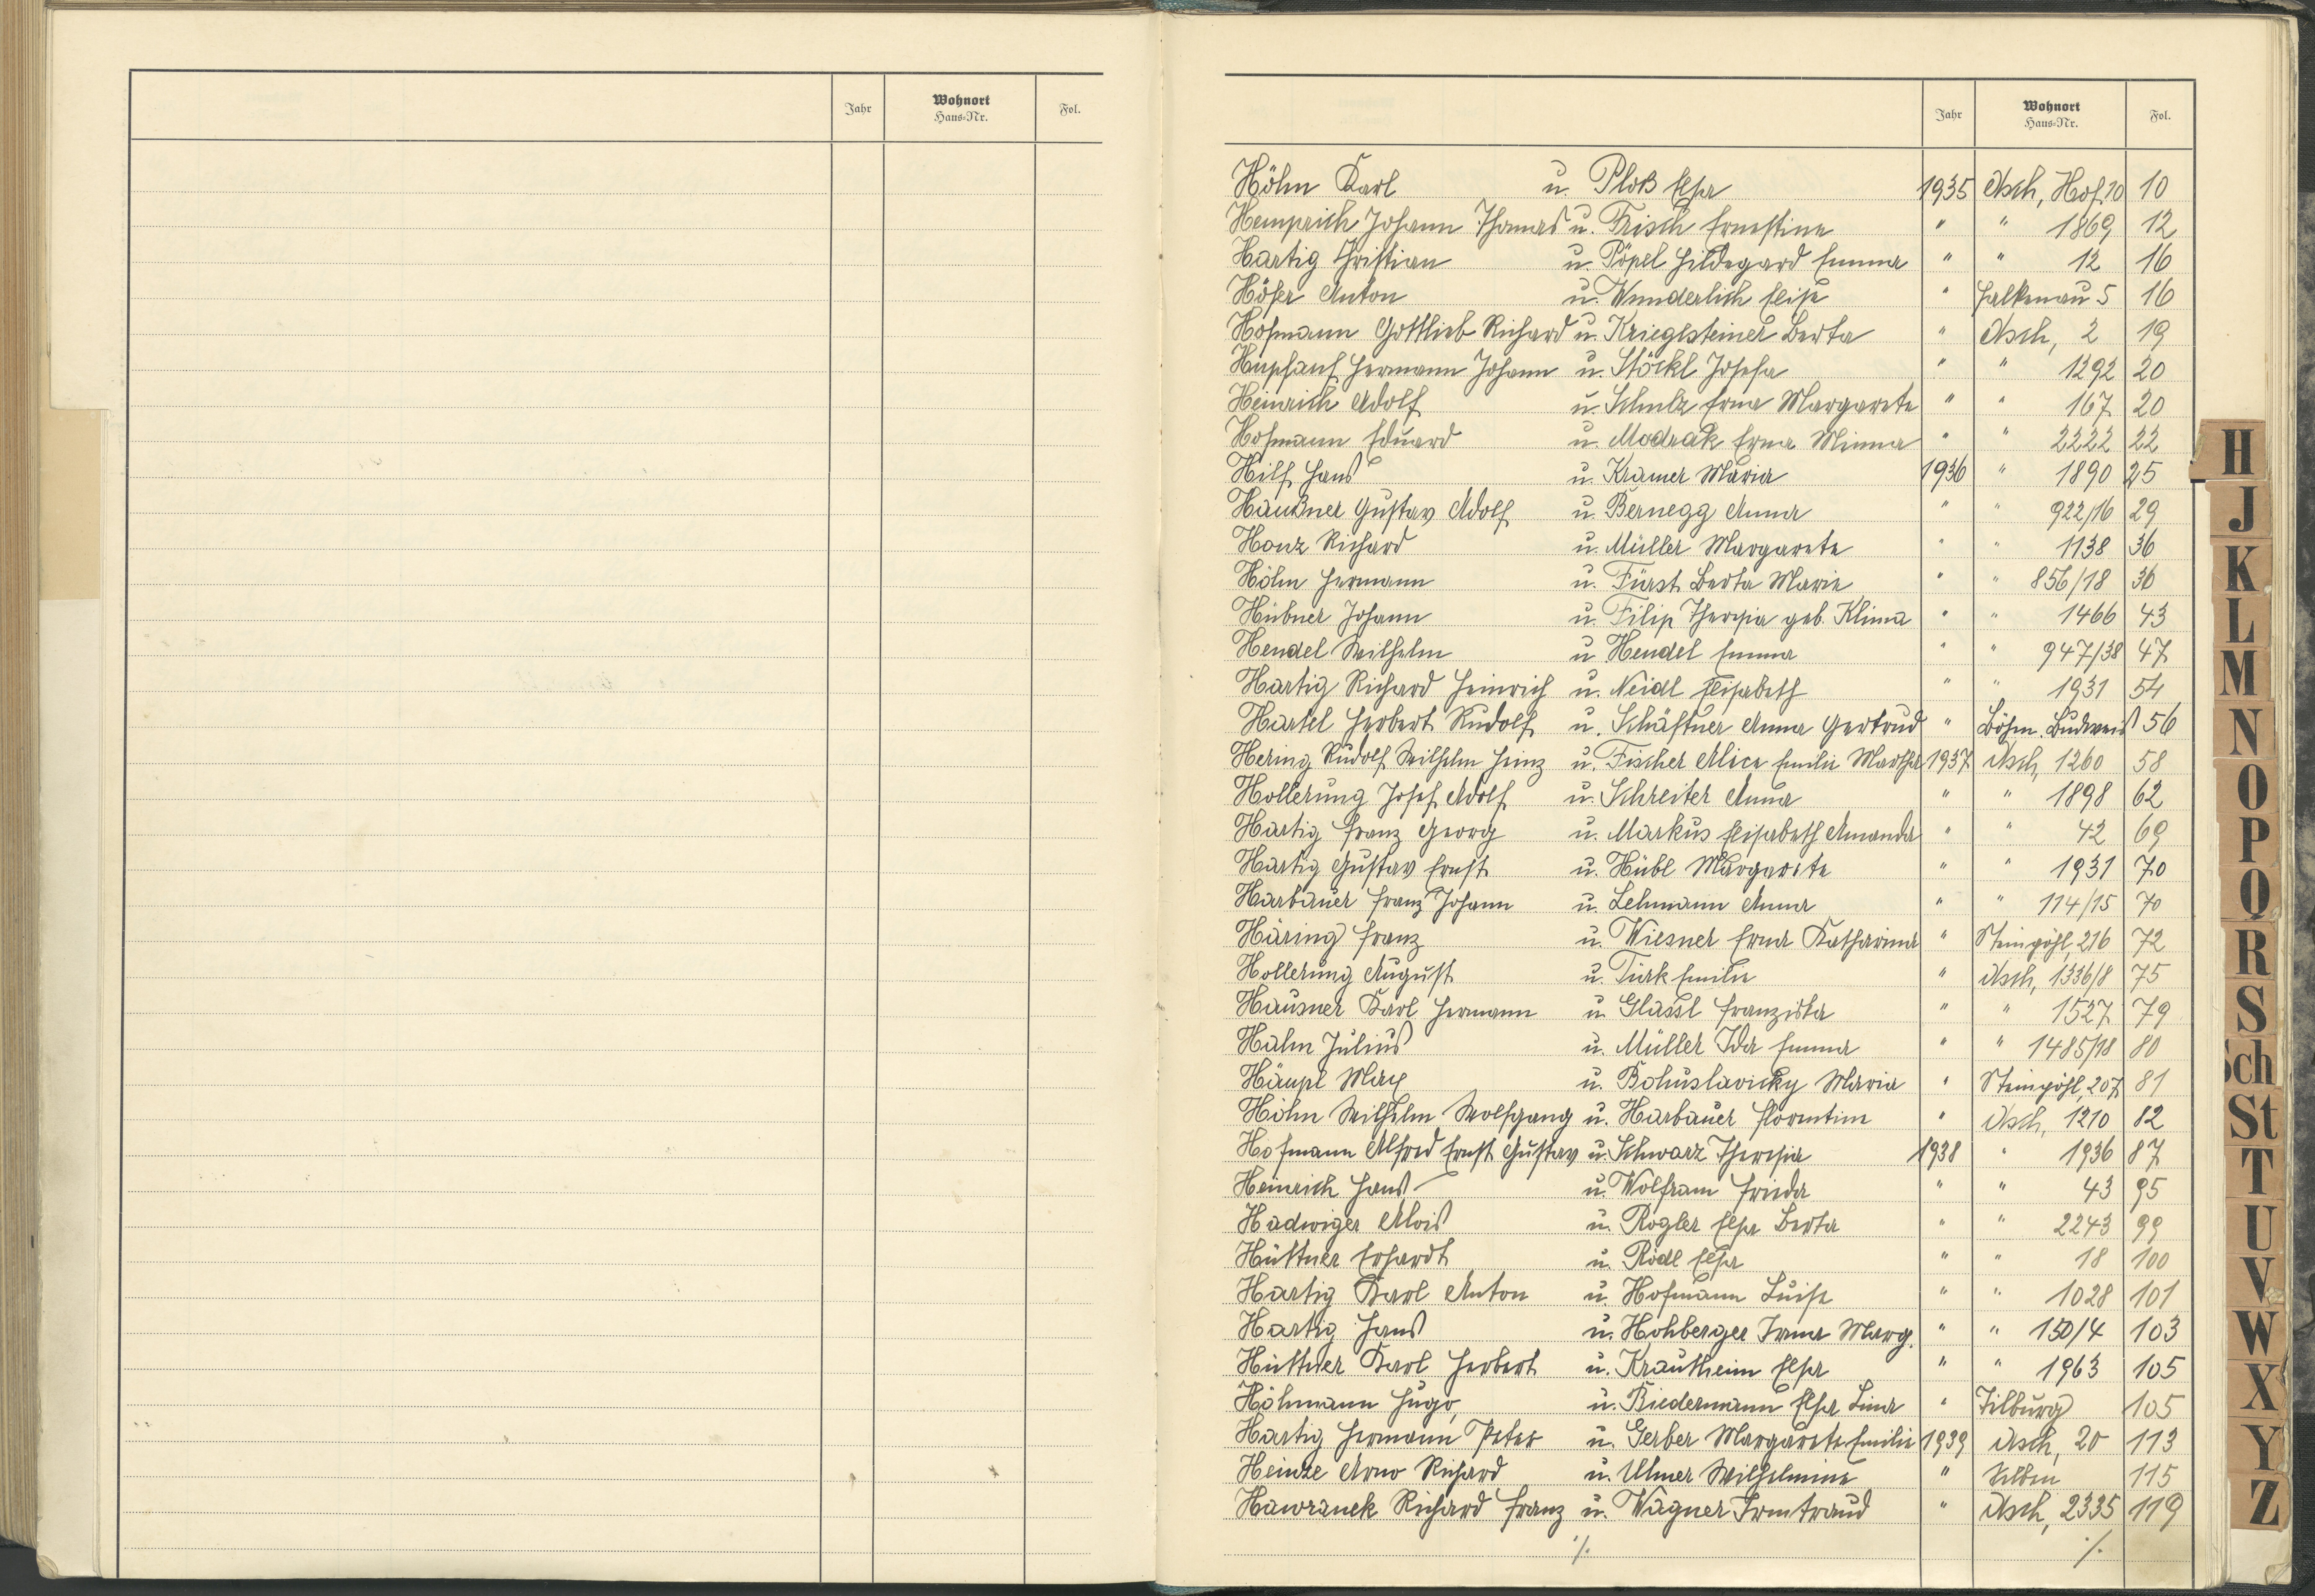 Jahr Wohnort Haus-Nr. Fol.
Jahr Wohnort Haus-Nr. Fol.
Höhn Karl u. Ploß Elsa 1935 Asch, Hof 10 10
Hemprich Johann Thomas u. Frisch Ernestine " " 1869 12
Hartig Christian u. Pöpel Hildegard Emma " " 12 16
Höfer Anton u. Wunderlich Elise " Falkenau 5 16
Hofmann Gottlieb Richard u. Krieglsteiner Berta " Asch, 2 19
Hupfauf Hermann Johann u. Stöckl Josefa " " 1292 20
Heinrich Adolf u. Schulz Erna Margarete " " 167 20
Hofmann Eduard u. Modrak Erna Minna " " 2222 22
Hilf Hans u. Kramer Maria 1936 " 1890 25
Haußner Gustav Adolf u. Bernegg Anna " " 922/16 29
Honz Richard u. Müller Margarete " " 1138 36
Höhn Hermann u. Fürst Berta Marie " " 856/18 36
Hübner Johann u. Filip Theresia geb. Klima " " 1466 43
Hendel Wilhelm u. Hendel Emma " " 947/38 47
Hartig Richard Heinrich u. Neidl Elisabeth " " 1931 54
Hartel Herbert Rudolf u. Schäftner Anna Gertrud " Böhm. Budweis 56
Hering Rudolf Wilhelm Heinz u. Fischer Alice Emilie Martha 1937 Asch, 1260 58
Hollerung Josef Adolf u. Schreiter Anna " " 1898 62
Hartig Franz Georg u. Markus Elisabeth Amanda " " 42 69
Hartig Gustav Ernst u. Hübl Margarete " " 1931 70
Harbauer Franz Johann u. Lehmann Anna " " 114/15 70
Häring Franz u. Wiesner Erna Katharina " Steinpöhl, 216 72
Hollerung August u. Türk Emilie " Asch, 1336/8 75
Hausner Karl Hermann u. Glässl Franziska " " 1527 79
Hahn Julius u. Müller Ida Emma " " 1485/18 80
Häupl Max u. Bohuslavicky Maria " Steinpöhl, 207 81
Höhn Wilhelm Wolfgang u. Harbauer Florentine " Asch, 1210 82
Hofmann Alfred Ernst Gustav u. Schwarz Theresia 1938 " 1936 87
Heinrich Hans u. Wolfram Frieda " " 43 95
Hadwiger Alois u. Rogler Elsa Berta " " 2243 99
Hüttner Erhardt u. Rödl Elsa " " 18 100
Hartig Karl Anton u. Hofmann Luise " " 1028 101
Hartig Hans u. Hohberger Irma Marg. " " 150/4 103
Hüttner Karl Herbert u. Krautheim Elsa " " 1963 105
Höhmann Hugo, u. Biedermann Elsa Lina " Tilburg 105
Hartig Hermann Peter u. Gerber Margarete Emilie 1939 Asch, 20 113
Heinze Arno Richard u. Ulmer Wilhelmine " 115
Hawranek Richard Franz u. Wagner Irmtraud " Asch, 2335 119
./. ./.
H
J
K
L
M
N
O
P
Q
R
S
Sch
St
T
U
V
W
X
Y
Z